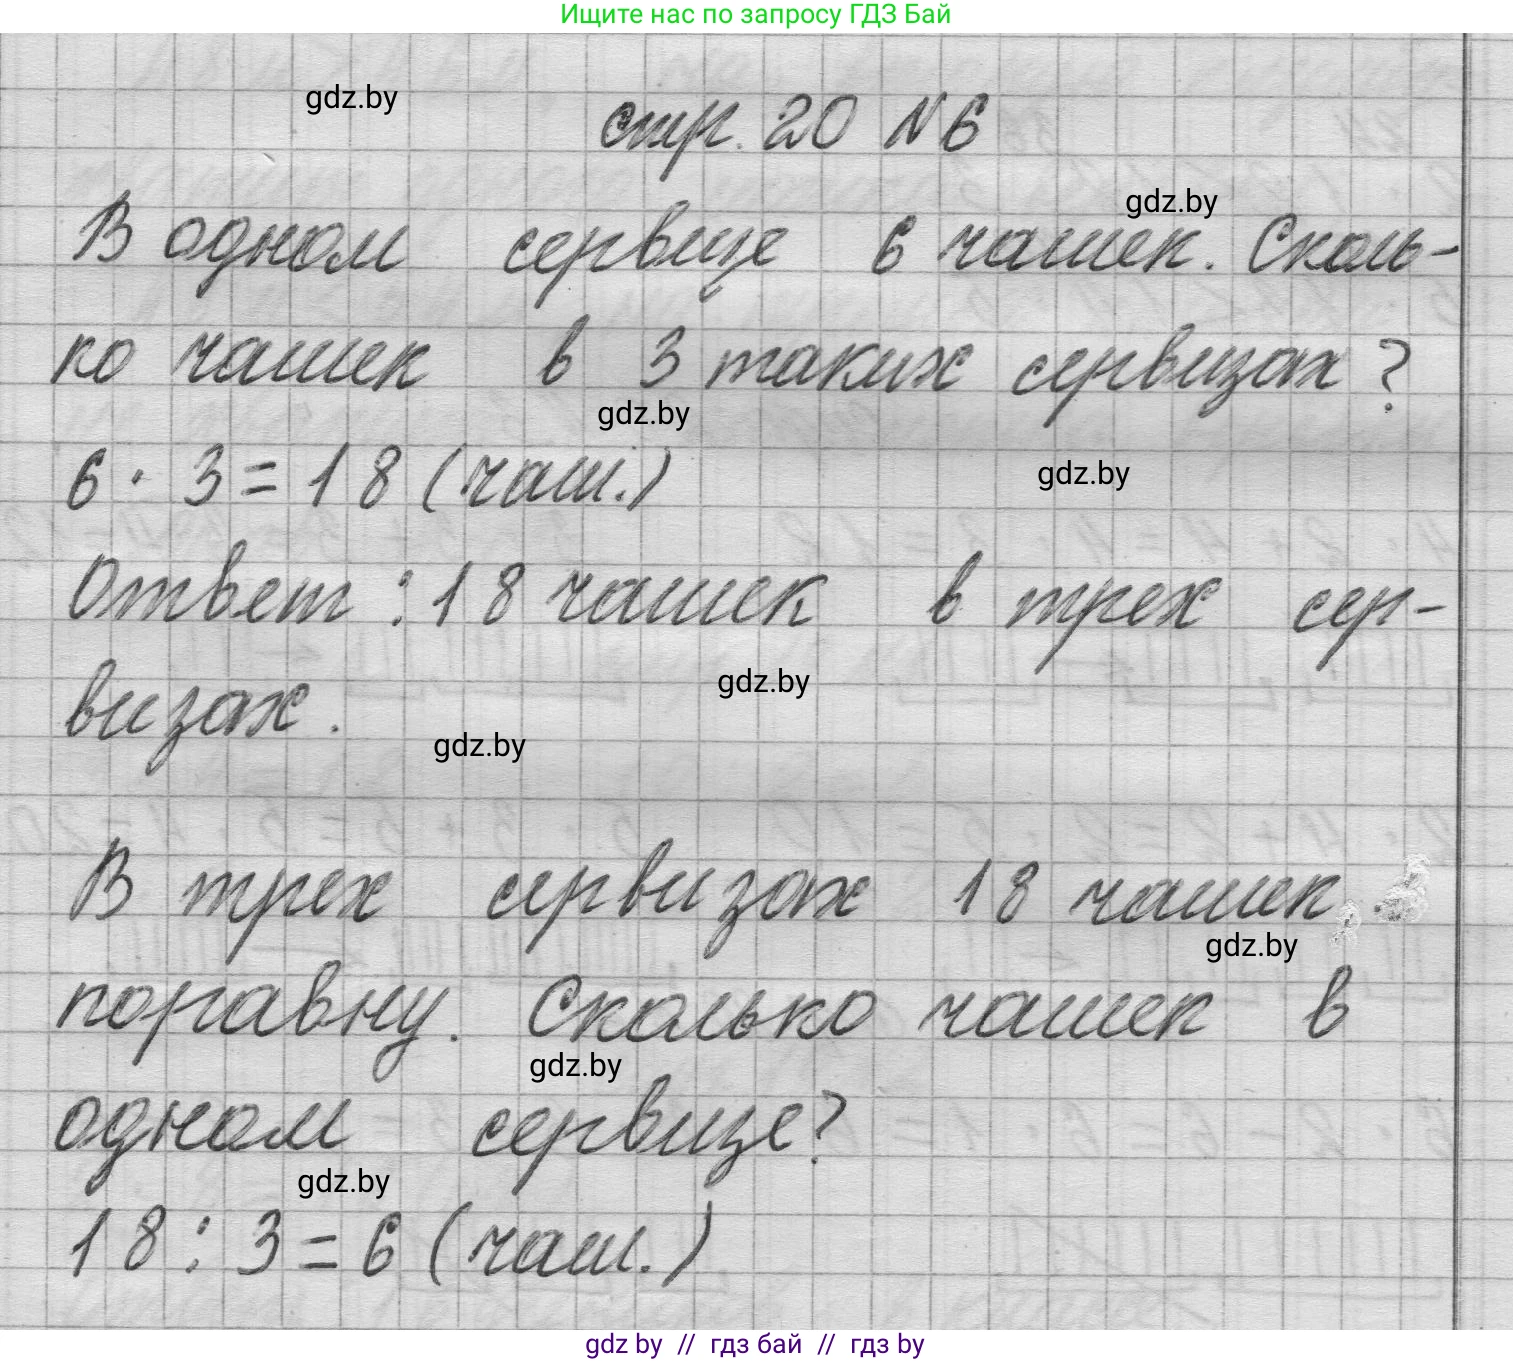 Ищите нас по запросу ГДЗ Бай
gdz.by
стр. 20 №6
gdz.by
В одном сервизе 6 чашек. Сколь-
ко чашек в 3 таких сервизах?
gdz.by
6 · 3 = 18 (чаш.)
gdz.by
Ответ: 18 чашек в трех сер-
визах.
gdz.by
gdz.by
В трех сервизах 18 чашек
gdz.by
поравну. Сколько чашек в
gdz.by
одном сервизе?
gdz.by
18 : 3 = 6 (чаш.)
gdz.by // гдз бай // гдз by